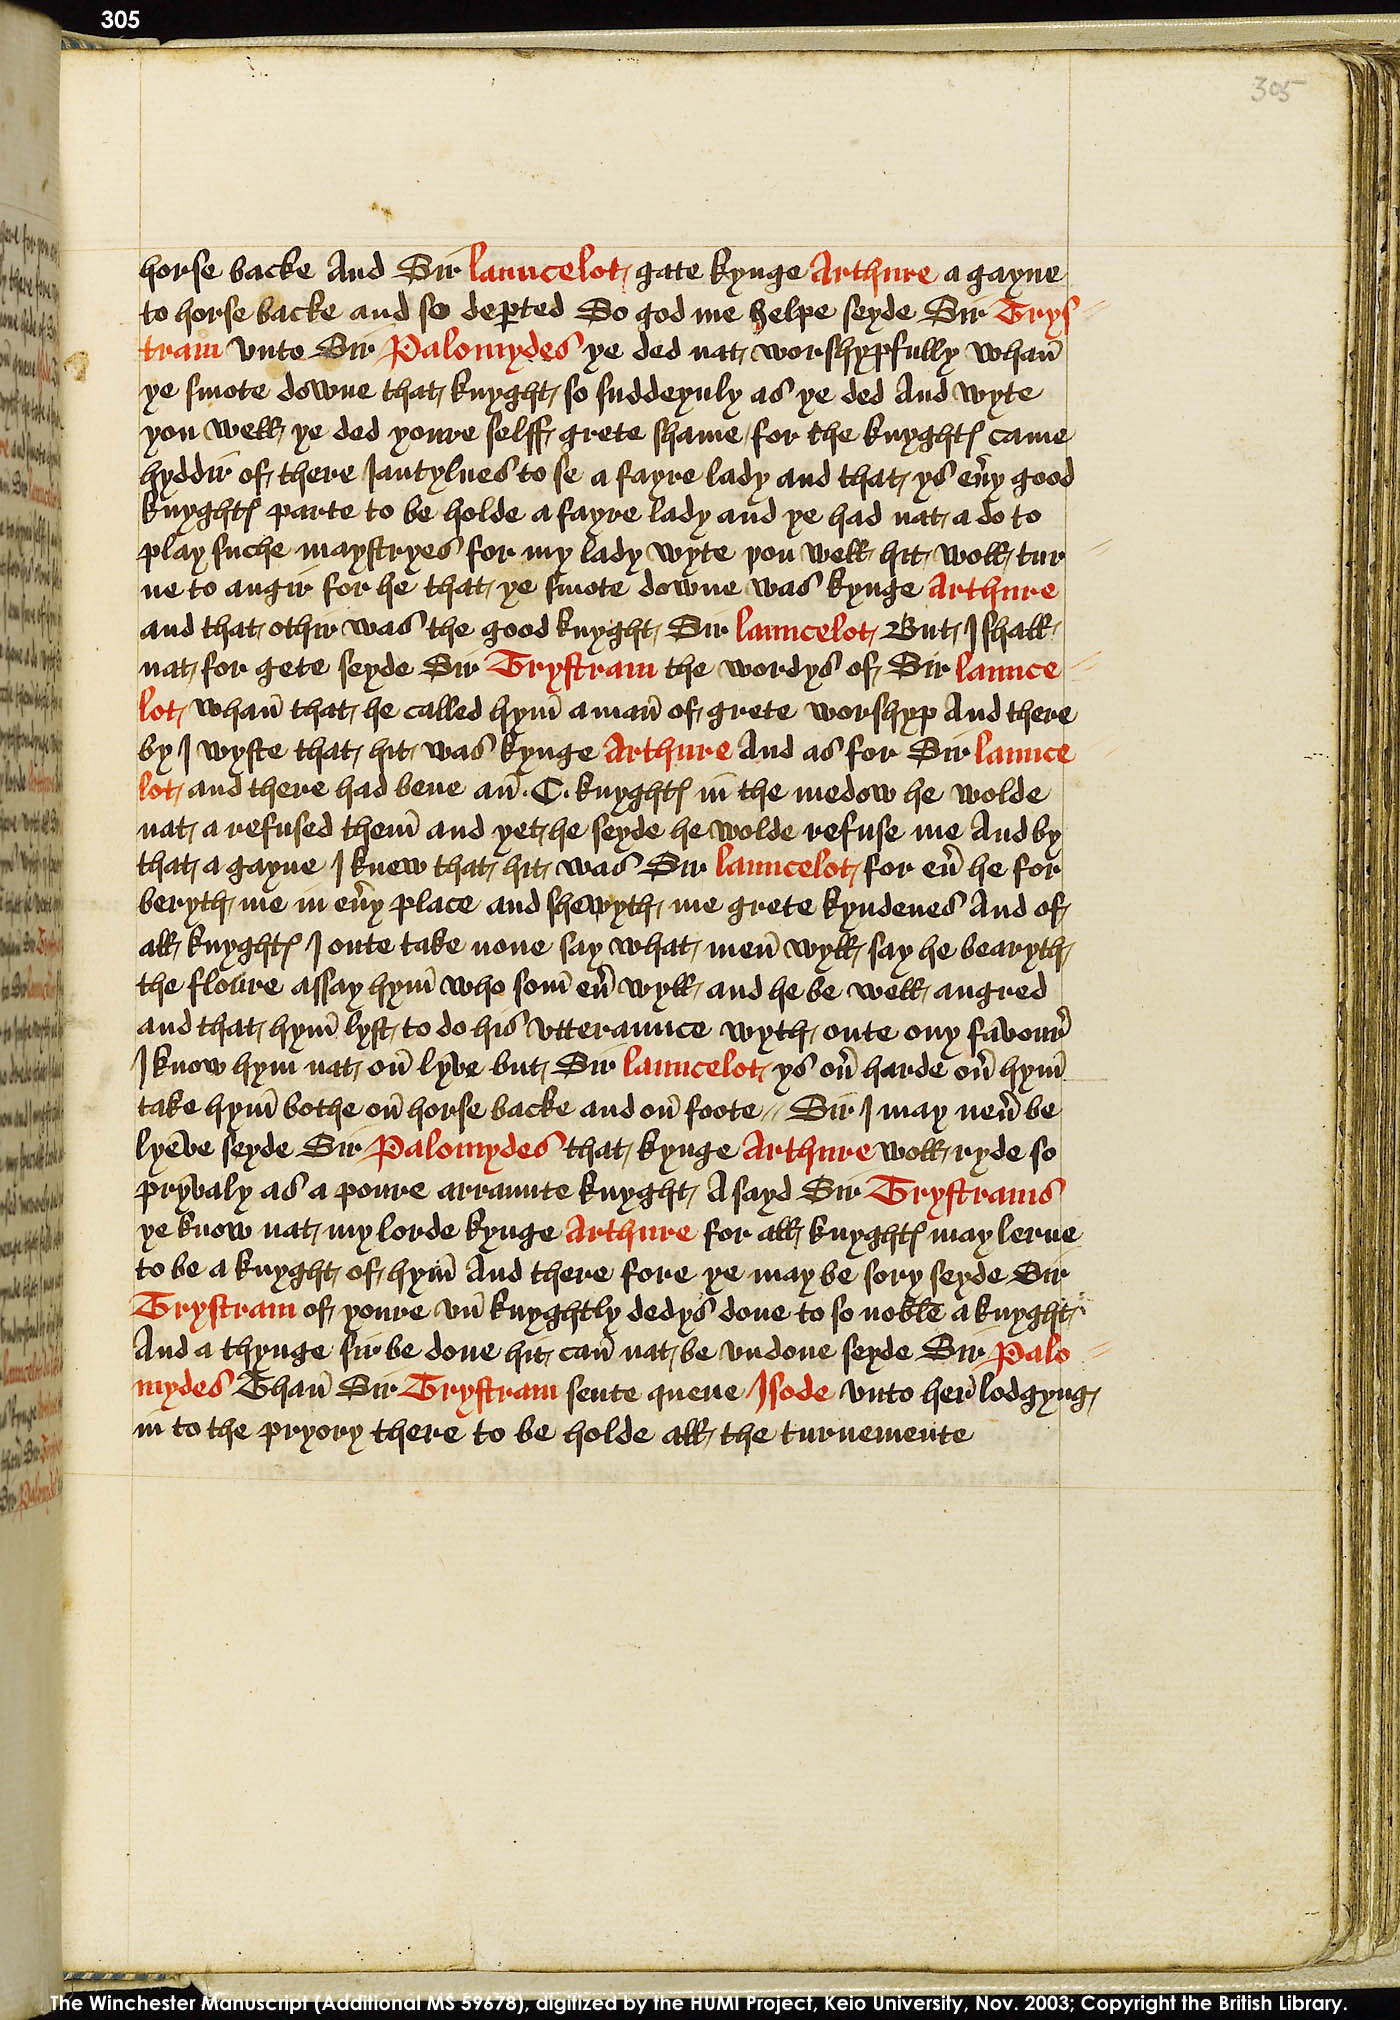 305
305
horse backe And Sir launcelot gate kynge Arthure a gayne
to horse backe and so deꝑted So god me helpe seyde Sir Trys
tram vnto Sir Palomydes ye ded nat worshypfully whan̄
ye smote downe that knyght so suddeynly as ye ded And wyte
you well ye ded youre selff grete shame for the knyghtꝭ came
hyddir of there Jantylnes to se a fayre lady and that ys eu̓y good
knyghtꝭ parte to be holde a fayre lady and ye had nat a do to
play suche maystryes for my lady wyte you well hit woll tur
ne to angir for he that ye smote downe was kynge Arthure
and that othir was the good knyght Sir launcelot But I shall
nat for gete seyde Sir Trystram the wordys of Sir launce
lot whan̄ that he called hym̄ a man̄ of grete worshyp And there
by I wyste that hit was kynge Arthure And as for Sir launce
lot and there had bene an̄ .C. knyghtꝭ in̄ the medow he wolde
nat a refused them̄ and yet he seyde he wolde refuse me And by
that a gayne I knew that hit was Sir launcelot for eu̓ he for
beryth me in eu̓y place and shewyth me grete kyndenes And of
all knyghtꝭ I oute take none say what men̄ wyll say he bearyth
the floure assay hym̄ who som̄ eu̓ wyll and he be well angred
and that hym̄ lyst to do his vtteraunce wyth oute ony favour̓
I know hym nat on̄ lyve but Sir launcelot ys ou̓ harde ou̓ hym̄
take hym̄ bothe on̄ horse backe and on̄ foote // Sir I may neu̓ be
lyeve seyde Sir Palomydes that kynge Arthure woll ryde so
pryvaly as a poure arraunte knyght A sayd Sir Trystrams
ye know nat my lorde kynge Arthure for all knyghtꝭ may lerne
to be a knyght of hym̄ And there fore ye may be sory seyde Sir
Trystram of youre vn̄ knyghtly dedys done to so noble a knyght
And a thynge sir be done hit can̄ nat be vndone seyde Sir Palo
mydes Than̄ Sir Trystram sente quene Isode vnto her̓ lodgyng
in to the pryory there to be holde all the turnemente
The Winchester Manuscript (Additional MS 59678), digitized by the HUMI Project, Keio University, Nov. 2003; Copyright the British Library.